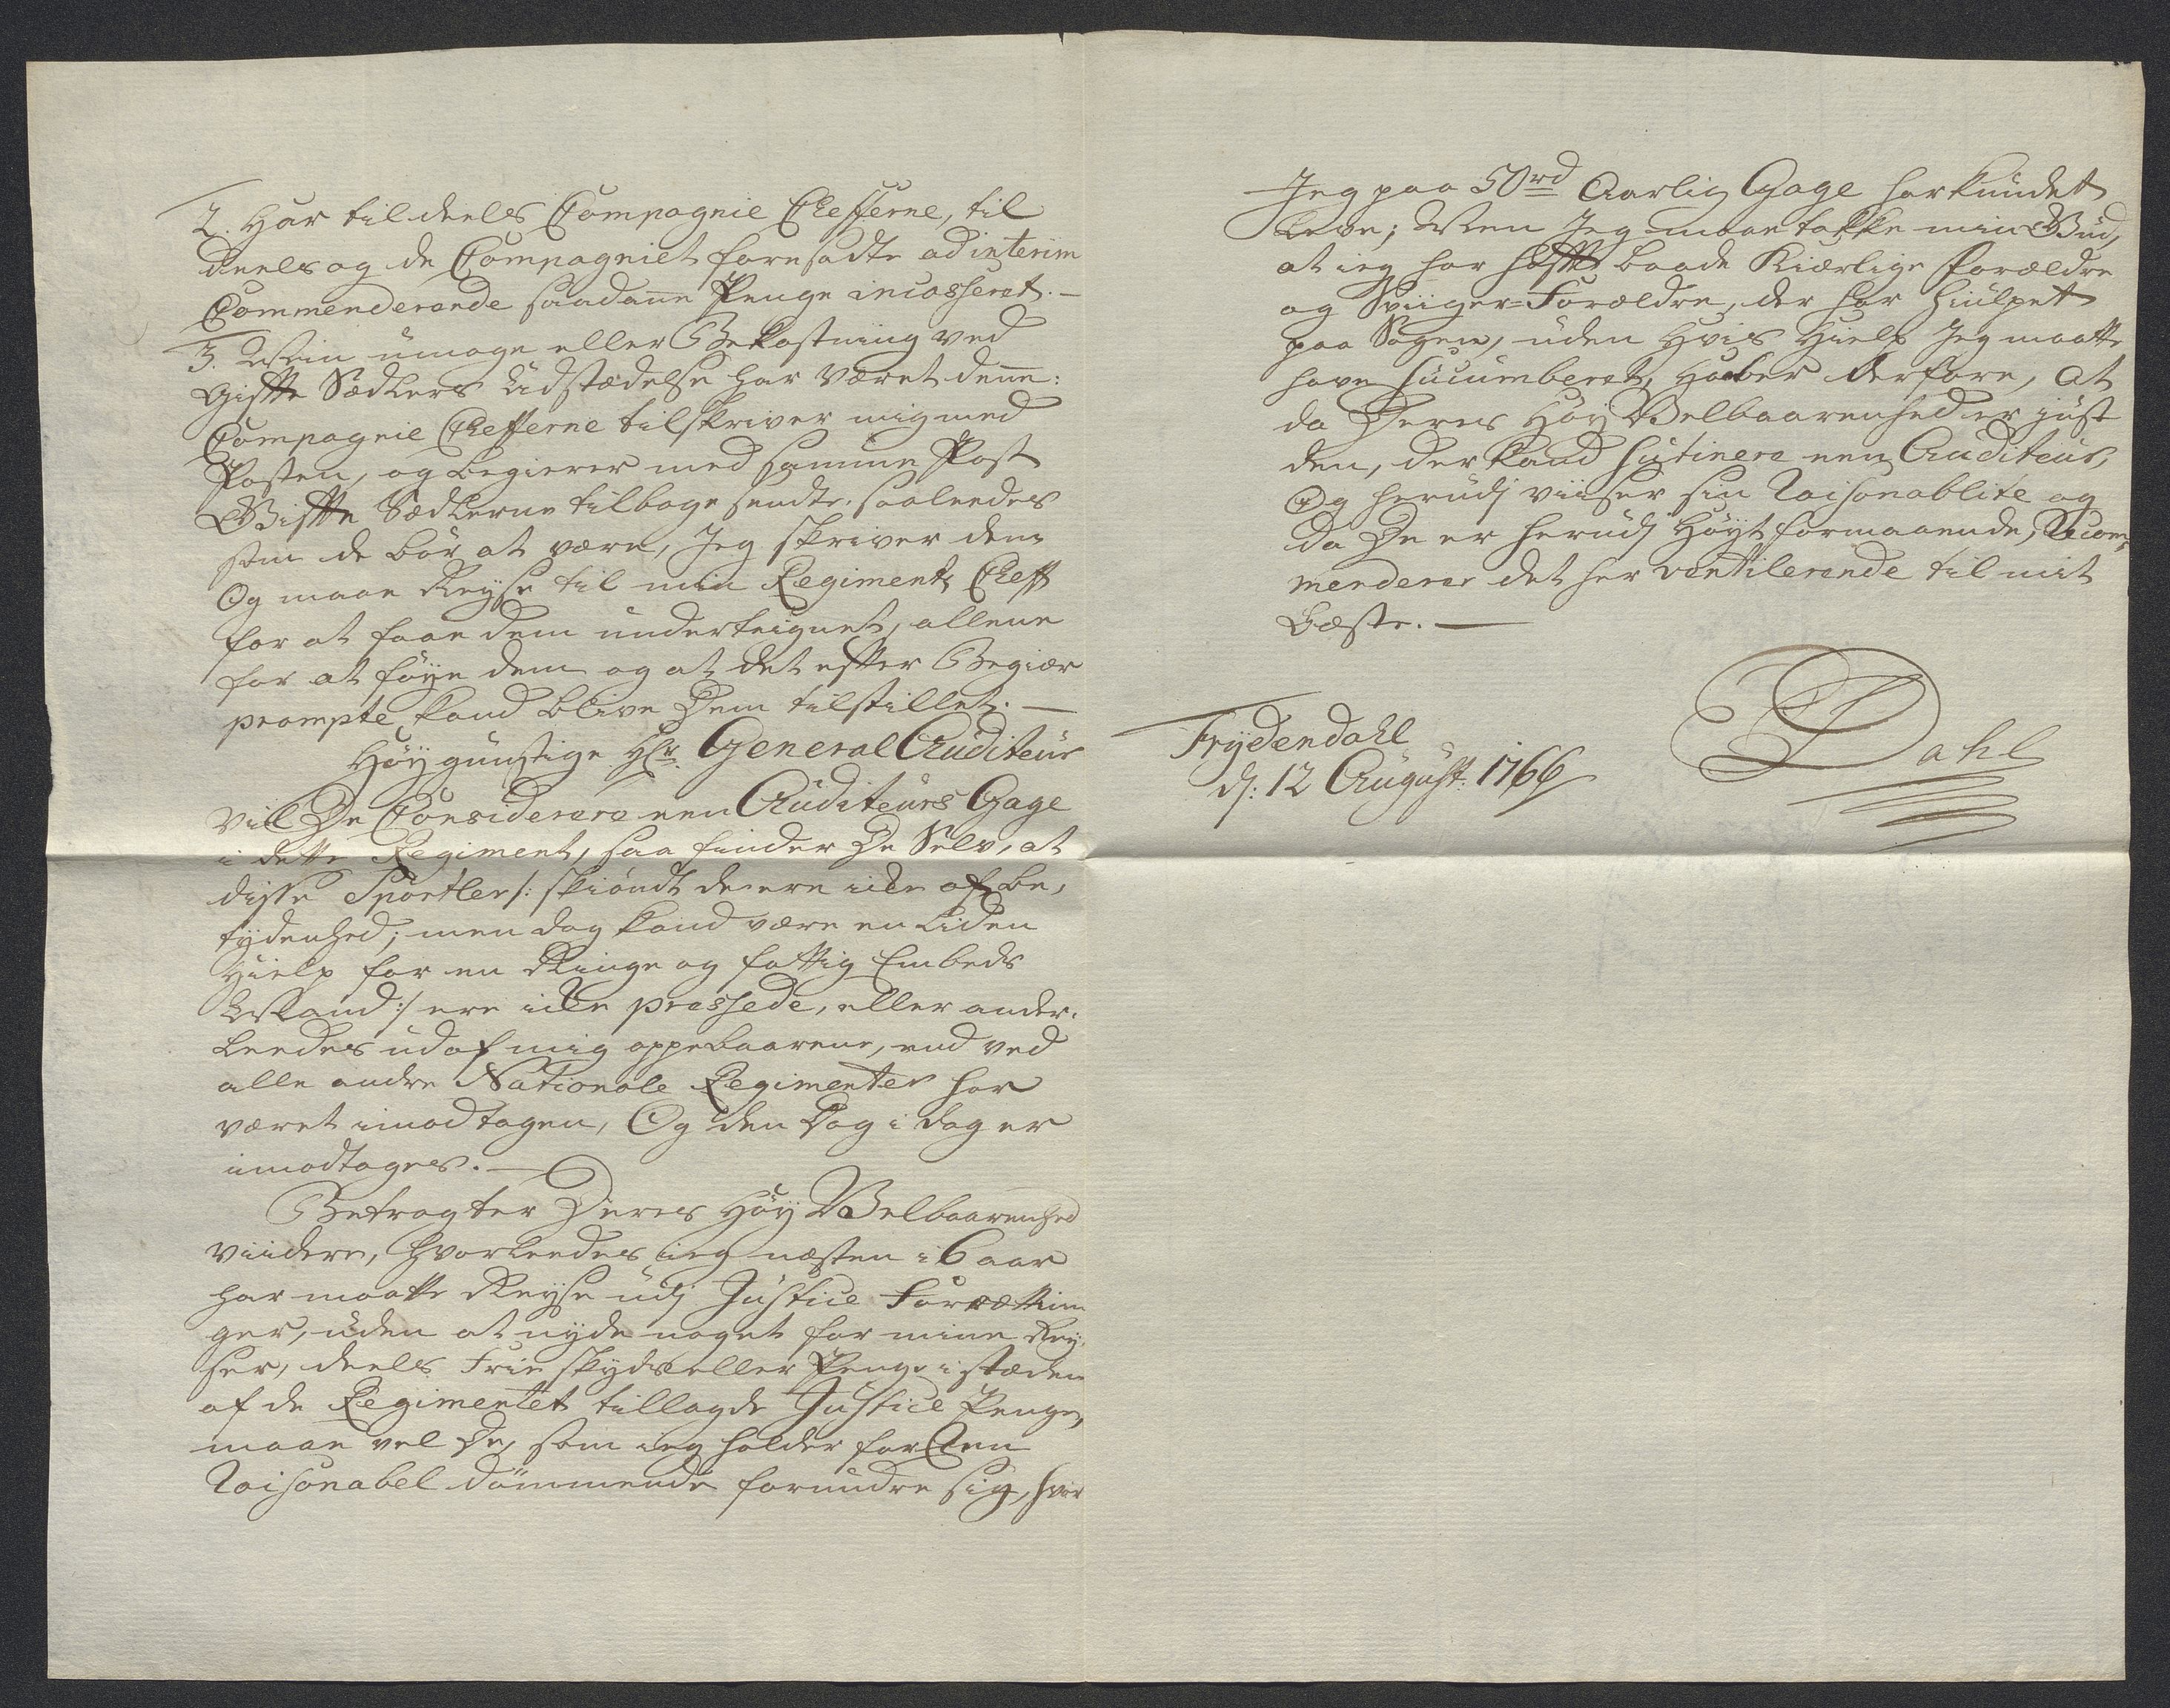 2. Har til deels Compagnie Chefferne, til
deels og de Compagniet foresadte ad interim
Commenderende saadanne Penge incasseret. —
3. Min umage eller Bekostning ved
Gifte Sedlers Udstædelse har været denne:
Compagnie Chefferne tilskriver mig med
Posten, og begierer med samme Post
Gifte Sedlerne tilbage sendte. saaleedes
som de bör at være, Jeg skriver dem
Og maae Reyse til min Regiments Cheff
for at faae dem underteignet, allene
for at föye dem og at det efter Begiær
prompte kand blive Dem tilstillet. —
Höygunstige Hr. General Auditeur
vil De Considerere een Auditeurs Gage
i dette Regiment, saa finder De Selv, at
disse Sportler /: skiöndt de ere icke af be,
tydenhed; men dog kand være en Liden
Hielp for en Ringe og fattig Embeds
Mand :/ ere icke pressede, eller ander,
Leedes ud af mig oppebaarene, end ved
alle andre Nationale Regimenter har
været imodtagen, Og den Dag i dag er
imodtages. —
Betragter Deres Höy Velbaarenhed
viidere, hvorleedes ieg næsten i 6 aar
har maatte Reyse udj Justice Forrættin
ger, uden at nyde noget for mine Rey,
ser, deels Frie skyds eller Penge i stæden
af de Regimentet tillagde Justice Penge,
maae vel De, som ieg holder for Een
Raisonabel dömmende forundre sig, hvor
Jeg paa 50 rd Aarlig Gage har kundet
Leve; Men Jeg maae takke min Gud,
at ieg har hafft baade Kiærlige Forældre
og Sviiger-Forældre, der har hiulpet
paa Sagen, uden Hvis Hielp Jeg maatte
have Sucumberet, Haaber derfore, at
da Deres Höy Velbaarenhed er just
den, der kand Sutinere een Auditeur,
Og herudj viiser sin Raisonablite og
da De er herudj Höyt formaaende, Recom,
menderer det her ventilerende til mit
Bæste. —
Frydendahl
d: 12 August: 1766
Dahl